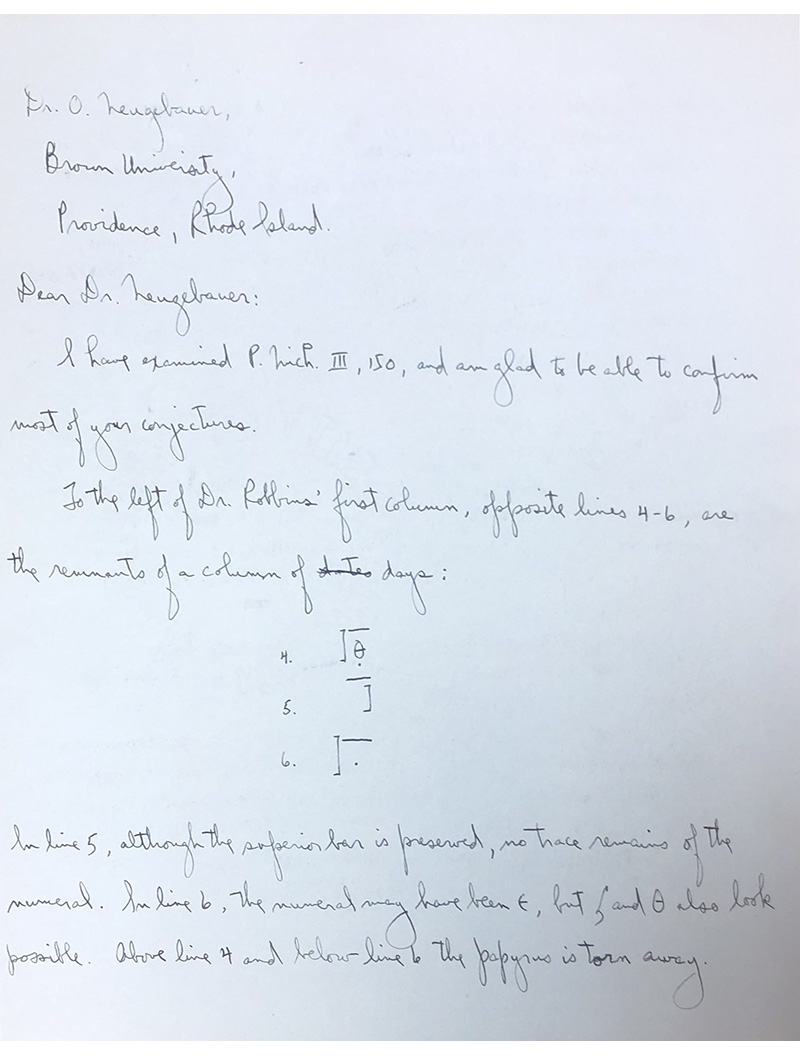 Dr. O. Neugebauer,
Brown University,
Providence, Rhode Island.
Dear Dr. Neugebauer:
I have examined P. Mich. III, 150, and am glad to be able to confirm
most of your conjectures.
To the left of Dr. Robbins' first column, opposite lines 4-6, are
the remnants of a column of dates days:
4. ]θ̣̅
5. ̅ ]
6. ]̅.
In line 5, although the superior bar is preserved, no trace remains of the
numeral. In line 6, the numeral may have been ε, but ς and θ also look
possible. Above line 4 and below line 6 the papyrus is torn away.